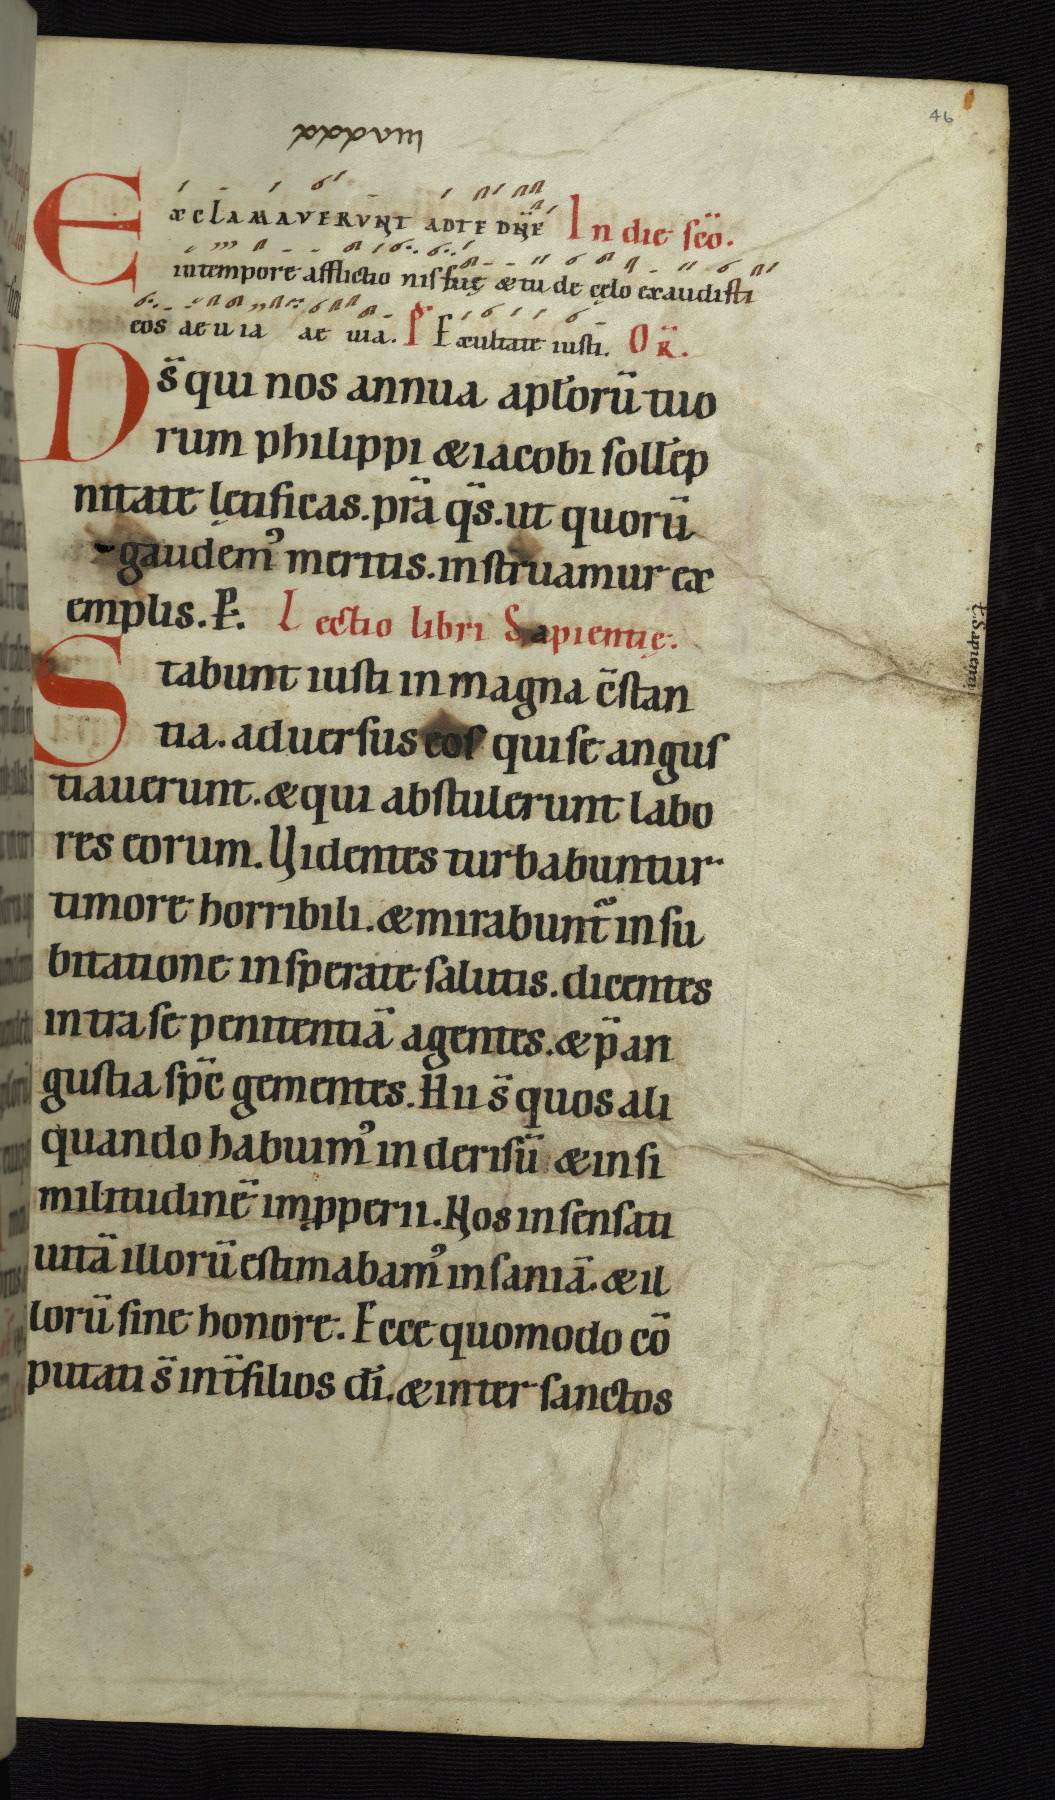 46
EXCLAMAVERVNT AD TE DN̄E In die scō.
in tempore afflictionis suę & tu de cęlo exaudisti
eos aeuia aeuia. P̄ Exultate iusti. OR̄.
Ds̄ qui nos annua apl̄orū tuo
rum philippi & iacobi soll̄ep
nitate lętificas. p̄ra q̄s. ut quorū
gaudemꝰ meritis. instruamur ex
emplis. P̄. Lectio libri Sapientię.
Stabunt iusti in magna c̄stan
tia. aduersus eos qui se angus
tiauerunt. & qui abstulerunt labo
res eorum. Videntes turbabuntur
timore horribili. & mirabunt̄ in su
bitatione insperate salutis. dicentes
intra se penitentiā agentes. & p̄ an
gustia sp̄c gementes. Hii s̄ quos ali
quando habuimꝰ in derisū & in si
militudinē imꝓperii. Nos insensati
uitā illorū estimabamꝰ insaniā. & il
lorū sine honore. Ecce quomodo cō
putati s̄ int̄ filios dī. & inter sanctos